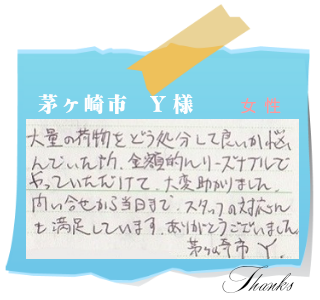 茅ヶ崎市 Y様 女性
大量の荷物をどう処分して良いか悩
んでいたが、金額的にリーズナブルで
やっていただけて、大変助かりました。
問い合せから当日まで、スタッフの対応に
も満足しています。ありがとうございました。
茅ヶ崎市 Y.
Thanks